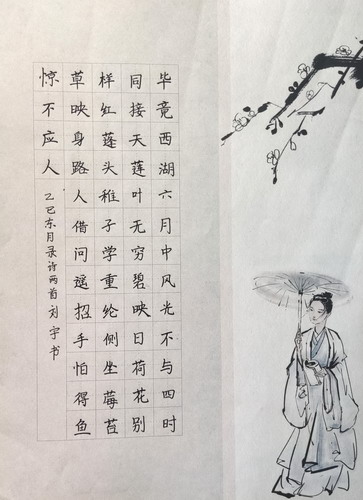 毕竟西湖六月中风光不与四时
同接天莲叶无穷碧映日荷花别
样红蓬头稚子学垂纶侧坐莓苔
草映身路人借问遥招手怕得鱼
惊不应人
乙巳冬月录诗两首刘宇书